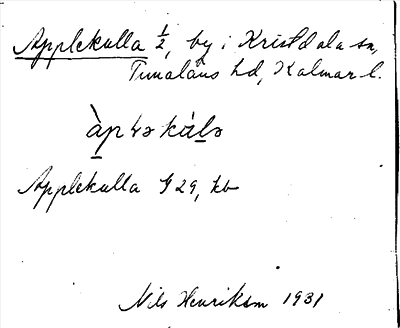 Applekulla ½, by i Kristdala sn,
Tunaläns hd, Kalmar l.
àpləkálə
Applekulla G 29, kb
Nils Henrikson 1931